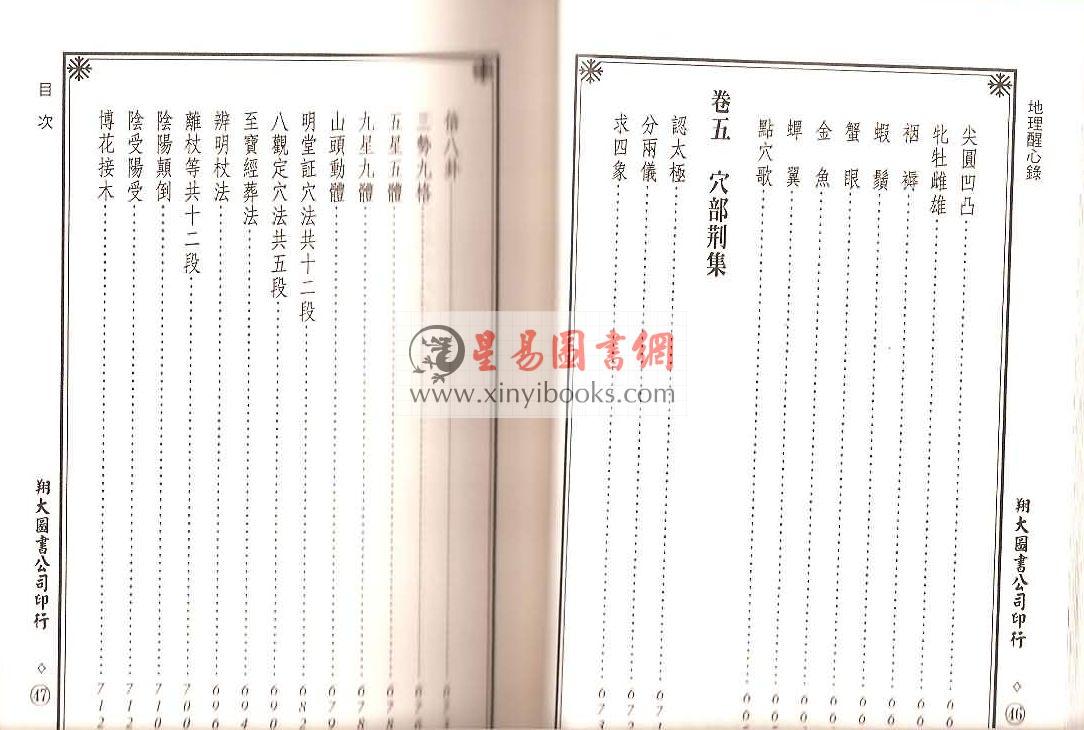 地理醒心錄
尖圓凹凸
牝牡雌雄
裀褥
蝦鬚
蟹眼
金魚
蟬翼
點穴歌
卷五 穴部荆集
認太極 671
分兩儀 672
求四象 673
翔大圖書公司印行
46
倍八卦
三勢九格
五星五體
九星九體 678
山頭動體 679
明堂証穴法共十二段 682
八觀定穴法共五段 690
至寶經葬法 694
辨明杖法 696
離杖等共十二段 700
陰陽顛倒 710
陰受陽受 712
博花接木 712
目次
翔大圖書公司印行
47
星易圖書網
www.xinyibooks.com